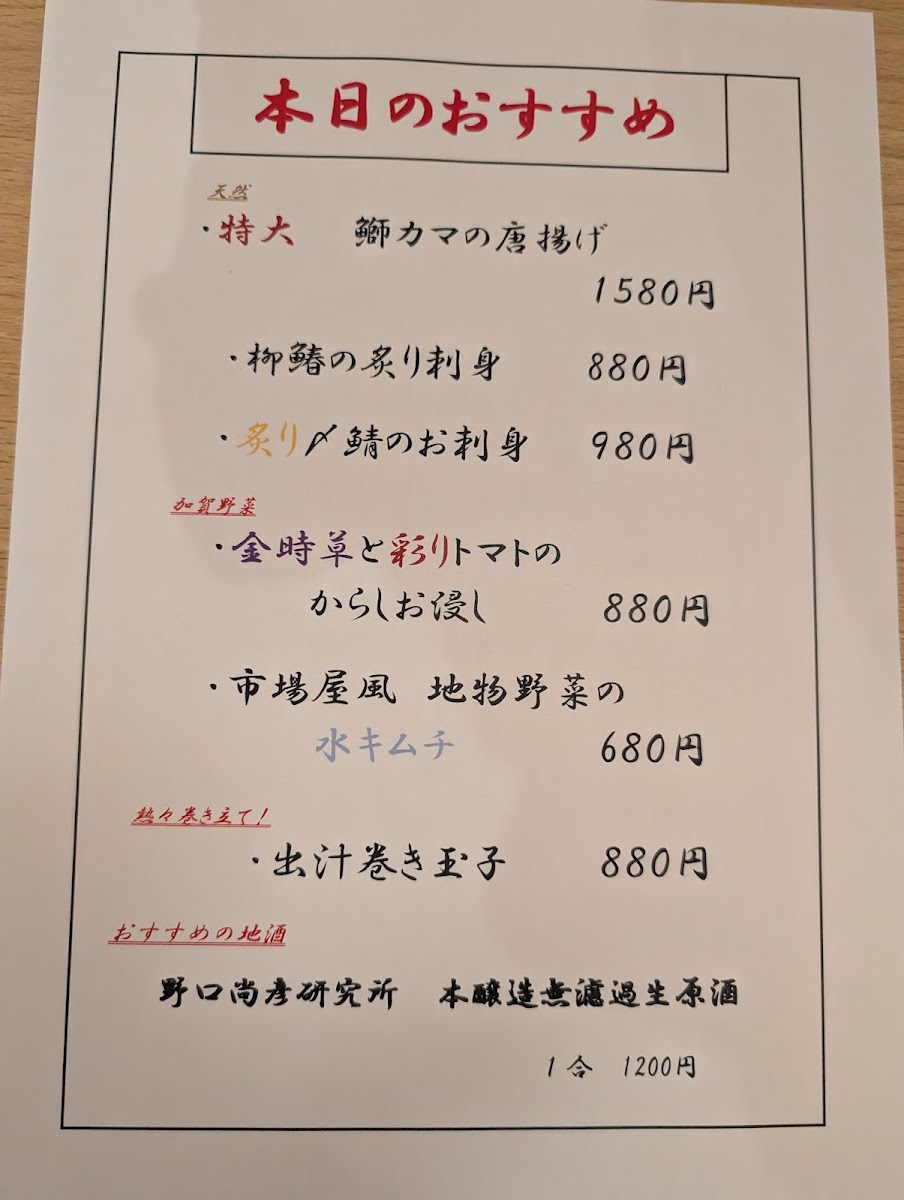 本日のおすすめ
天然
・特大 鰤カマの唐揚げ
1580円
・柳鰆の炙り刺身 880円
・炙り〆鯖のお刺身 980円
加賀野菜
・金時草と彩りトマトの
からしお浸し 880円
・市場屋風 地物野菜の
水キムチ 680円
熱々巻き立て!
・出汁巻き玉子 880円
おすすめの地酒
野口尚彦研究所 本醸造無濾過生原酒
1合 1200円